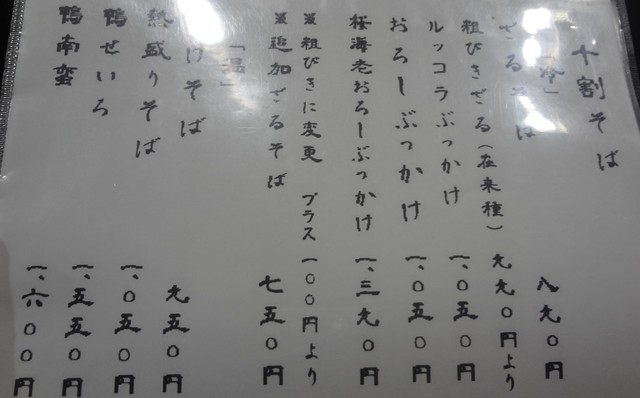 十割そば
「冷」
ざるそば 八九〇円
粗びきざる（在来種） 九九〇円より
ルッコラぶっかけ 一、〇五〇円
おろしぶっかけ 一、〇五〇円
桜海老おろしぶっかけ 一、三九〇円
※粗びきに変更 プラス 一〇〇円より
※追加ざるそば 七五〇円
「温」
かけそば 九五〇円
熱盛りそば 一、〇五〇円
鴨せいろ 一、五五〇円
鴨南蛮 一、六〇〇円